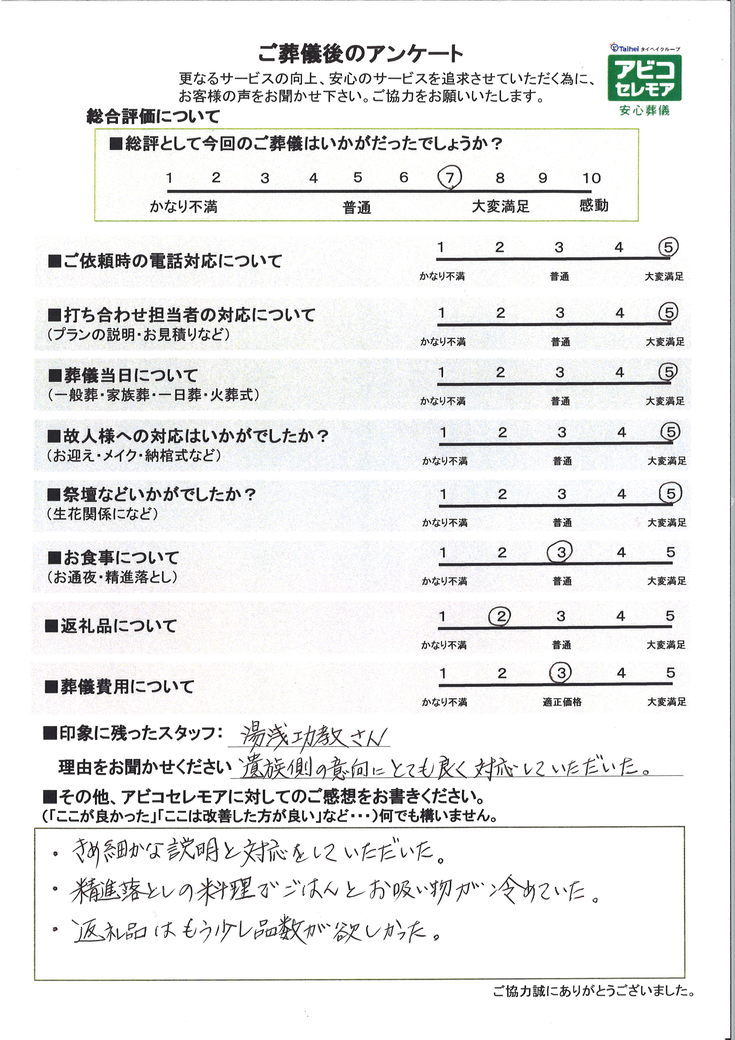 ご葬儀後のアンケート
Taihei タイヘイグループ
アビコ
セレモア
安心葬儀
更なるサービスの向上、安心のサービスを追求させていただく為に、
お客様の声をお聞かせ下さい。ご協力をお願いいたします。
総合評価について
■総評として今回のご葬儀はいかがだったでしょうか?
1 2 3 4 5 6 7 8 9 10
かなり不満 普通 大変満足 感動
■ご依頼時の電話対応について
1 2 3 4 5
かなり不満 普通 大変満足
■打ち合わせ担当者の対応について
(プランの説明・お見積りなど)
1 2 3 4 5
かなり不満 普通 大変満足
■葬儀当日について
(一般葬・家族葬・一日葬・火葬式)
1 2 3 4 5
かなり不満 普通 大変満足
■故人様への対応はいかがでしたか?
(お迎え・メイク・納棺式など)
1 2 3 4 5
かなり不満 普通 大変満足
■祭壇などいかがでしたか?
(生花関係になど)
1 2 3 4 5
かなり不満 普通 大変満足
■お食事について
(お通夜・精進落とし)
1 2 3 4 5
かなり不満 普通 大変満足
■返礼品について
1 2 3 4 5
かなり不満 普通 大変満足
■葬儀費用について
1 2 3 4 5
かなり不満 適正価格 大変満足
■印象に残ったスタッフ: 湯浅功教さん
理由をお聞かせください 遺族側の意向にとても良く対応していただいた。
■その他、アビコセレモアに対してのご感想をお書きください。
(「ここが良かった」「ここは改善した方が良い」など・・・)何でも構いません。
・きめ細かな説明と対応をしていただいた。
・精進落としの料理でごはんとお吸い物が冷めていた。
・返礼品はもう少し品数が欲しかった。
ご協力誠にありがとうございました。